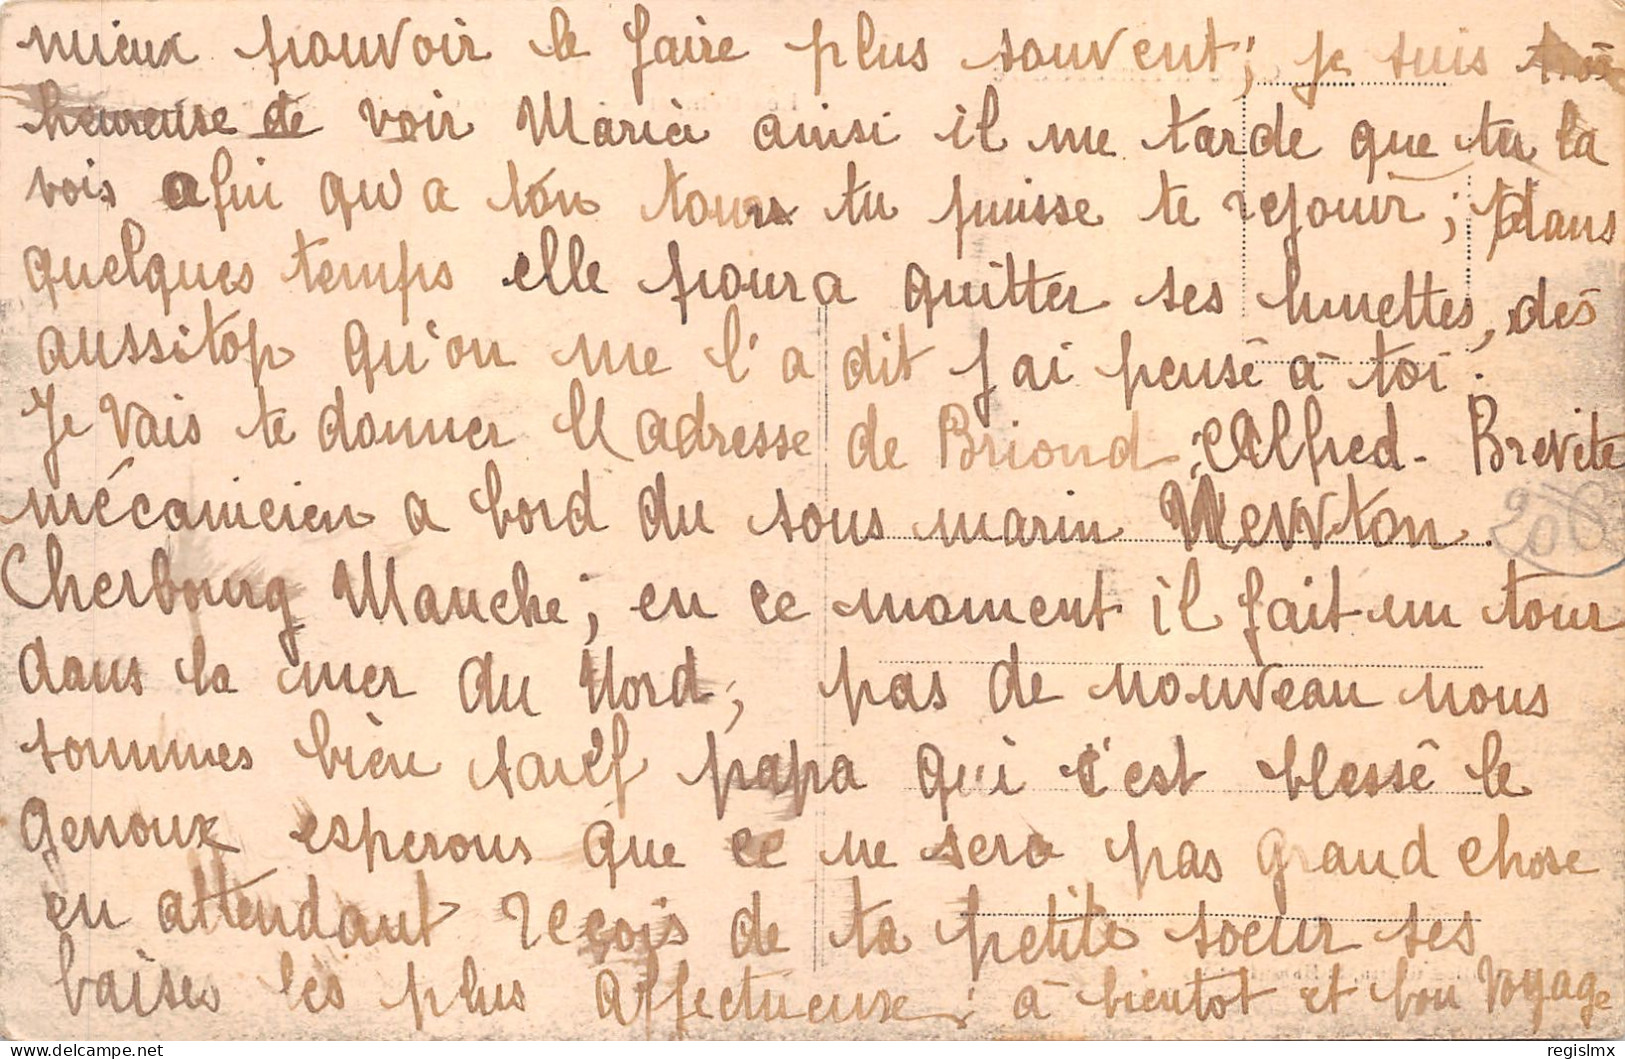 mieux pouvoir le faire plus souvent; je suis très
heureuse de voir Maria ainsi il me tarde que tu la
vois afin qu'a ton tours tu puisse te rejouir; dans
quelques temps elle poura quitter ses lunettes, dés
aussitop qu'on me l'a dit j'ai pensé à toi.
Je vais te donner l'adresse de Briond Alfred. Brevite
mécanicien a bord du sous marin Newton.
Cherbourg Manche; en ce moment il fait un tour
dans la mer du Nord, pas de nouveau nous
sommes bien sauf papa qui c'est blessé le
genoux esperons que ce ne sera pas grand chose
en attendant reçois de ta petite soeur ses
baises les plus affectueuse; à bientot et bon voyage
regislmx